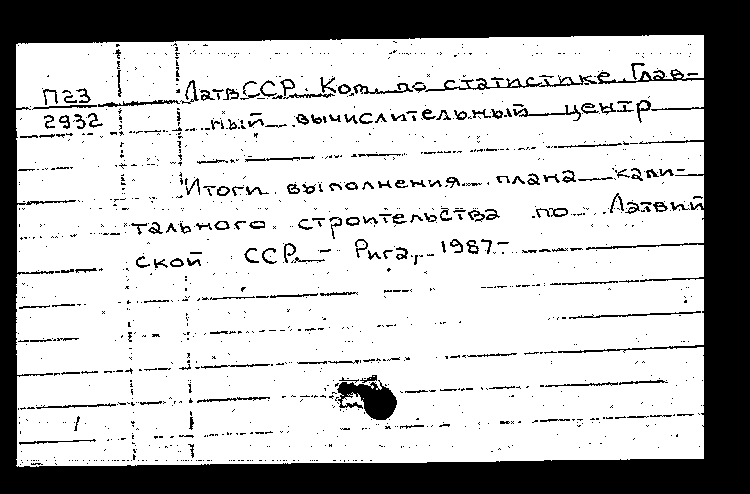 П23
2932
ЛатвССР. Ком. по статистике. Глав-
ный вычислительный центр
Итоги выполнения плана капи-
тального строительства по Латвий
ской ССР. – Рига, 1987–
1